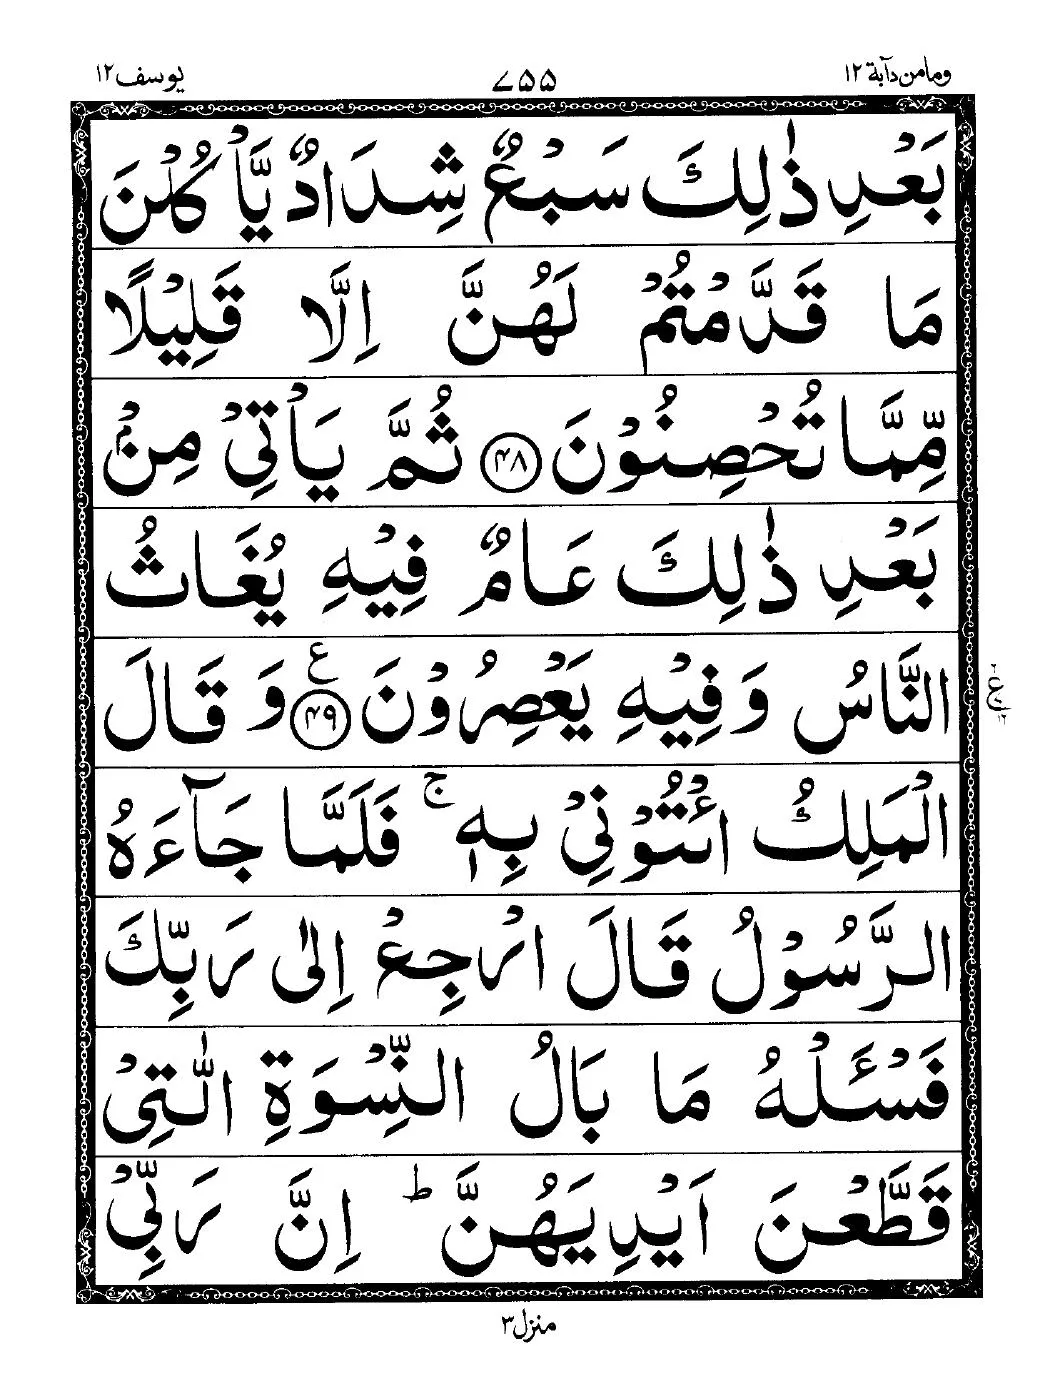 وما من دآبة ١٢
٧٥٥
يوسف ١٢
بَعْدِ ذٰلِكَ سَبْعٌ شِدَادٌ يَّاْكُلْنَ
مَا قَدَّمْتُمْ لَهُنَّ اِلَّا قَلِيْلًا
مِّمَّا تُحْصِنُوْنَ ﴿۴۸﴾ ثُمَّ يَاْتِيْ مِنْۢ
بَعْدِ ذٰلِكَ عَامٌ فِيْهِ يُغَاثُ
النَّاسُ وَفِيْهِ يَعْصِرُوْنَ ﴿۴۹﴾ ع وَقَالَ
الْمَلِكُ ائْتُوْنِيْ بِهٖ ۚ فَلَمَّا جَآءَهُ
الرَّسُوْلُ قَالَ ارْجِعْ اِلٰى رَبِّكَ
فَسْـَٔلْهُ مَا بَالُ النِّسْوَةِ الّٰتِيْ
قَطَّعْنَ اَيْدِيَهُنَّ ؕ اِنَّ رَبِّيْ
منزل ٣